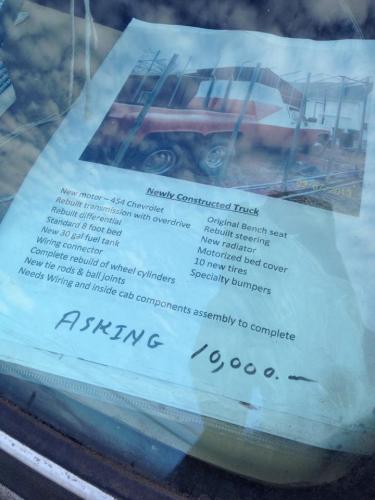 09/07/2013
Newly Constructed Truck
New motor – 454 Chevrolet
Rebuilt transmission with overdrive
Rebuilt differential
Standard 8 foot bed
New 30 gal fuel tank
Wiring connector
Complete rebuild of wheel cylinders
New tie rods & ball joints
Needs Wiring and inside cab components assembly to complete
Original Bench seat
Rebuilt steering
New radiator
Motorized bed cover
10 new tires
Specialty bumpers
ASKING 10,000.—